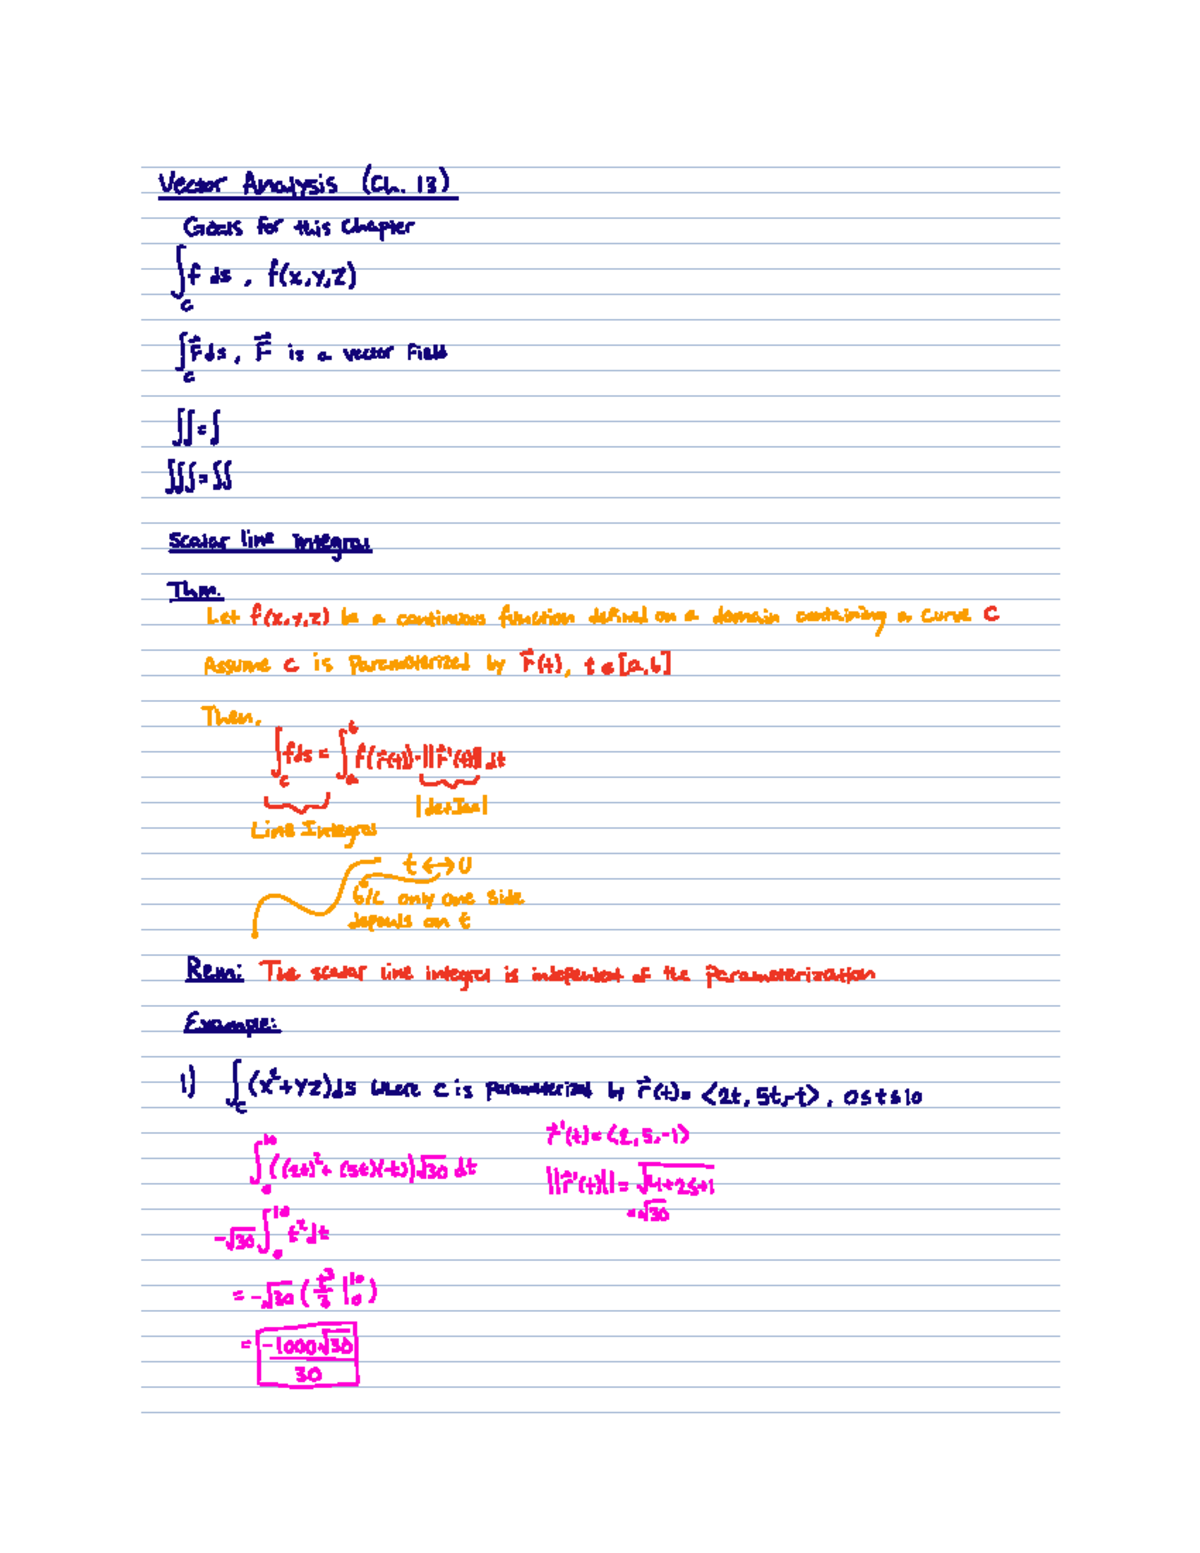 Vector Analysis (Ch. 13)
Goals for this Chapter
∫_C f ds , f(x,y,z)
∫_C F⃗ ds , F⃗ is a vector Field
∬ = ∫
∭ = ∬
Scalar line Integral
Thm.
Let f(x,y,z) be a continuous function defined on a domain containing a curve C
Assume C is Parameterized by r⃗(t), t ∈ [a,b]
Then,
∫_C f ds = ∫_a^b f(r⃗(t))·||r⃗'(t)|| dt
|det Jac|
Line Integral
t ↔ U
b/c only one side
depends on t
Rem: The scalar line integral is independent of the Parameterization
Example:
1) ∫_C (x²+yz)ds where C is parameterized by r⃗(t)= <2t, 5t,-t> , 0≤t≤10
r⃗'(t)=<2,5,-1>
∫_0^10 ((2t)²+(5t)(-t))√30 dt
||r⃗'(t)|| = √4+25+1
=√30
-√30 ∫_0^10 t² dt
= -√30 (t³/3 |_0^10)
= -1000√30
30